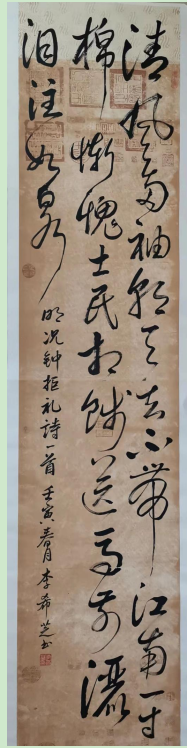 清風兩袖朝天去不帶江南一寸
棉慚愧士民相餞送馬前灑
泪注如泉
明况钟拒礼詩一首 壬寅春月 李希芝书